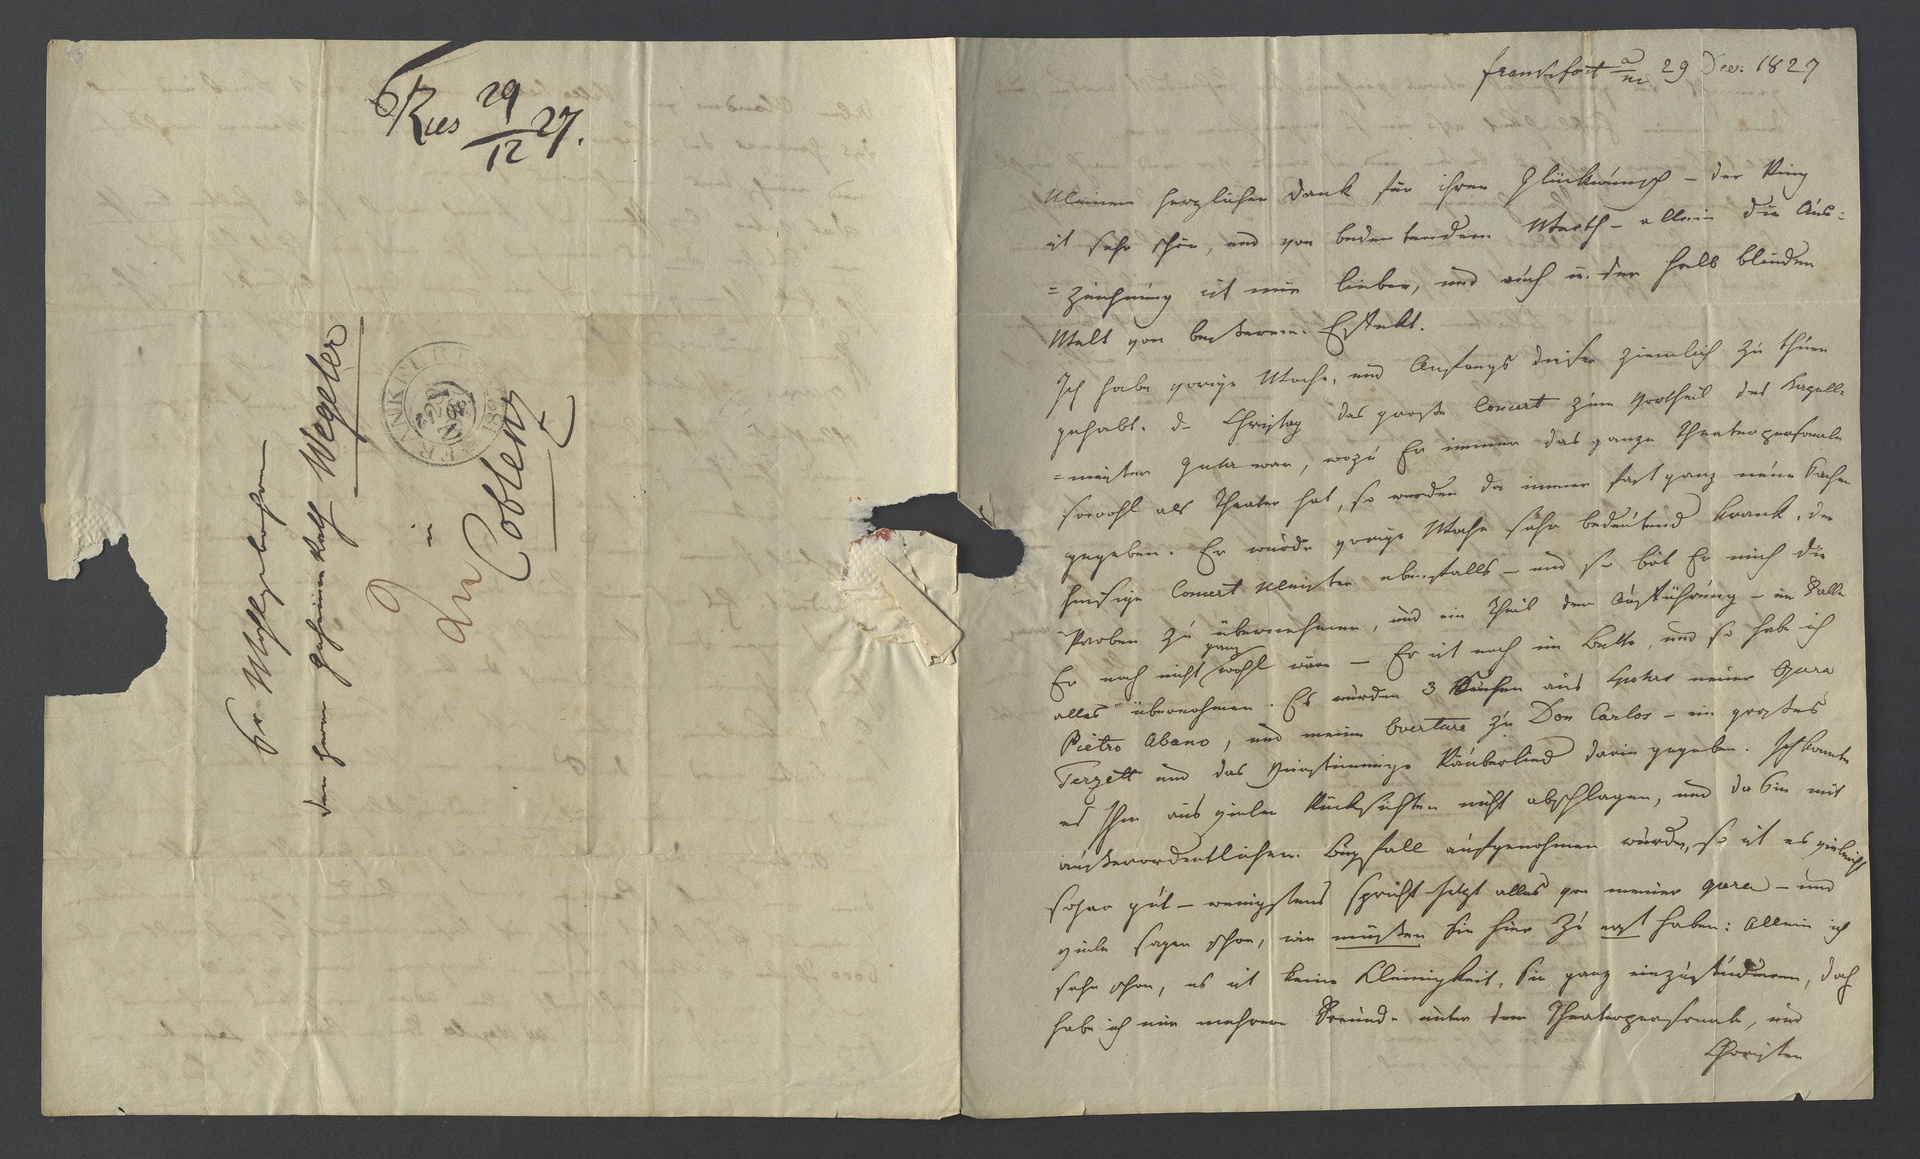 Ries 29/12 27.
Sr Wohlgebohren
den Herrn Geheimrath Wegeler
in
Coblenz
Frankfort a/m 29 Dec: 1827
Meinen herzlichen Dank für ihren Glückwunsch – der Ring
ist sehr schön, und von bedeutendem Werth – allein die Aus=
=zeichnung ist mir lieber, und auch in der halb blinden
Welt von besserem Effekt.
Ich habe vorige Woche, und Anfangs dieser ziemlich zu thun
gehabt. d. Christag das große Concert zum Vortheil des Kapell=
=meister Guhr war, wozu Er immer das ganze Theaterpersonale
sowohl als Theater hat, so werden da immer fast ganz neue Sachen
gegeben. Er wurde vorige Woche sehr bedeutend krank, der
hiesige Concert Meister ebenfalls – und so bat Er mich die
Proben zu übernehmen, und ein Theil der Aufführung – im Falle
Er noch nicht ganz wohl wäre – Er ist noch im Bette, und so habe ich
alles übernohmen. Es wurden 3 Sachen aus Spohrs neuer Opera
Pietro Abano, und meine Overture zu Don Carlos – ein großes
Terzett und das vierstimmige Räuberlied darin gegeben. Ich konnte
es Ihm aus vielen Rücksichten nicht abschlagen, und da Sie mit
außerordentlichen Beyfall aufgenohmen wurde, so ist es vieleicht
sogar gut – wenigstens spricht jetzt alles von meiner opera – und
viele sagen schon, wir müßten Sie hier zu erst haben: allein ich
sehe schon, es ist keine Kleinigkeit, Sie ganz einzustudieren, doch
habe ich nun mehrere Freunde unter dem Theaterpersonale, und